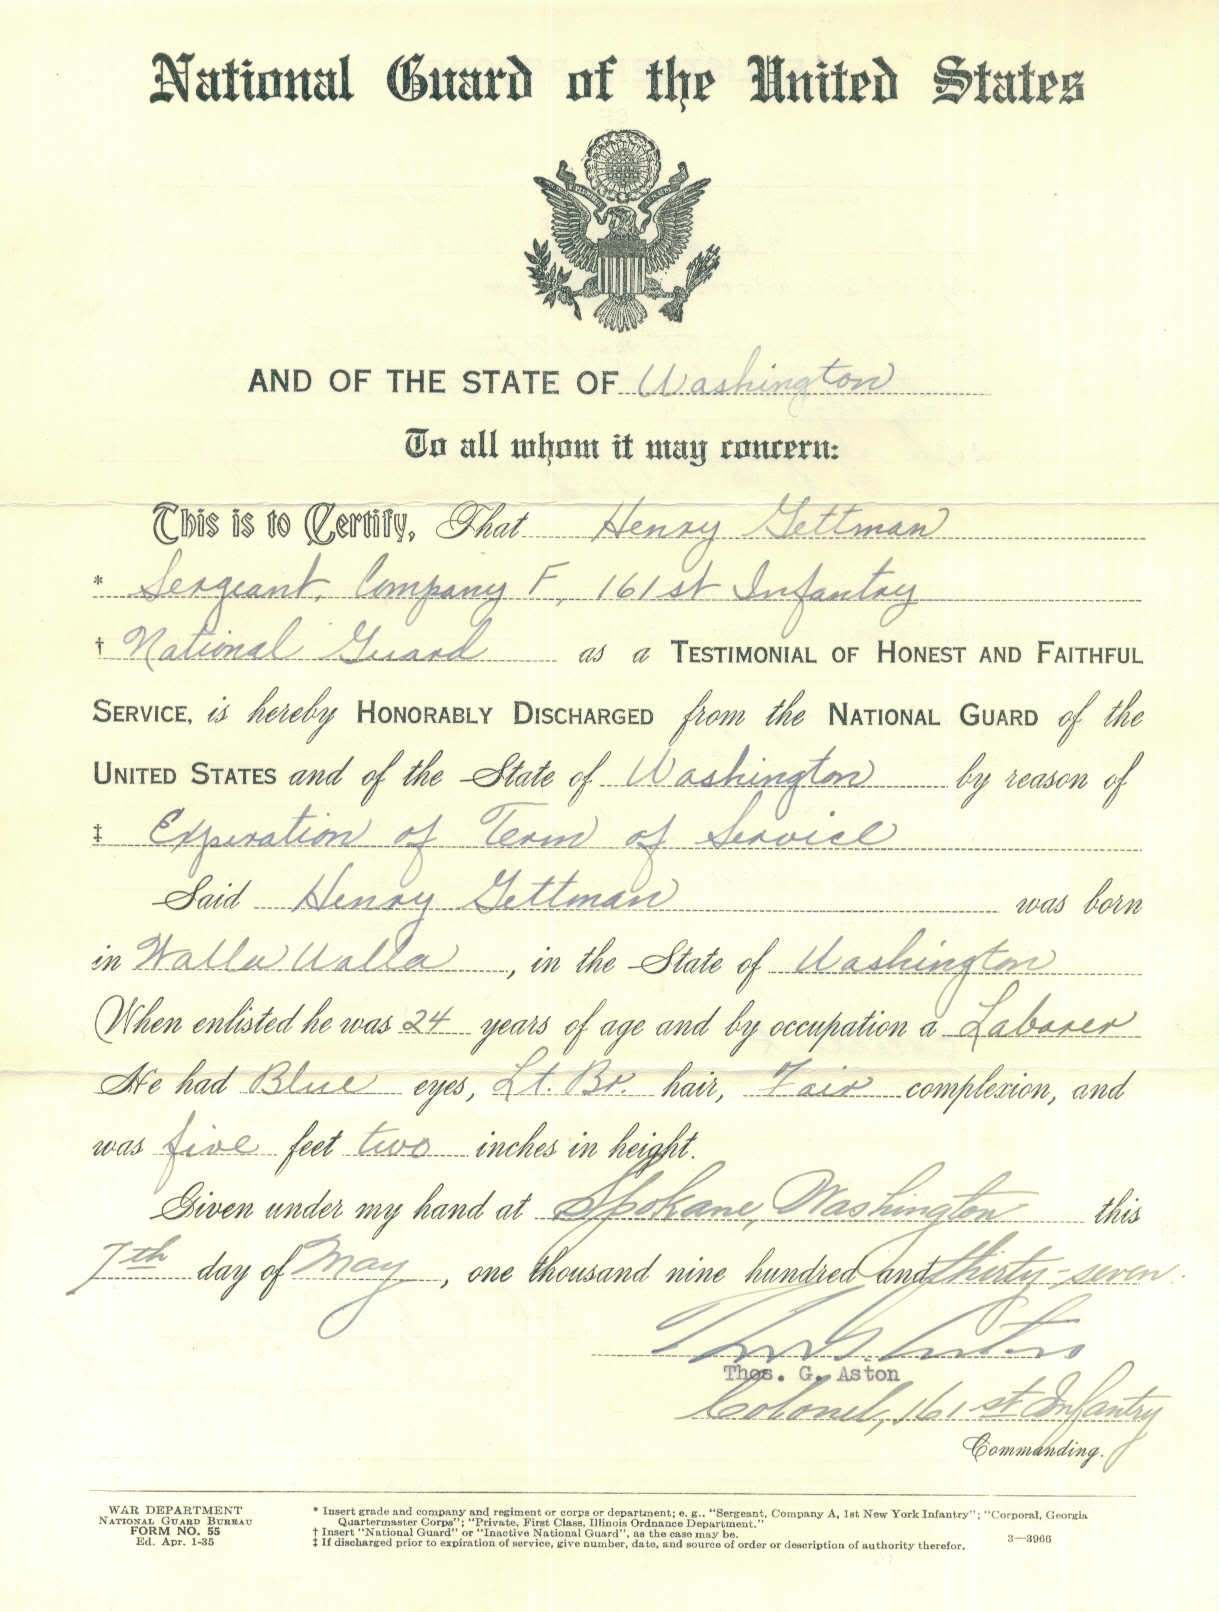 National Guard of the United States
AND OF THE STATE OF Washington
To all whom it may concern:
This is to Certify, That Henry Gettman
* Sergeant, Company F, 161st Infantry
† National Guard as a TESTIMONIAL OF HONEST AND FAITHFUL
SERVICE, is hereby HONORABLY DISCHARGED from the NATIONAL GUARD of the
UNITED STATES and of the State of Washington by reason of
‡ Expiration of Term of Service
Said Henry Gettman was born
in Walla Walla, in the State of Washington
When enlisted he was 24 years of age and by occupation a Laborer
He had Blue eyes, Lt. Br. hair, Fair complexion, and
was five feet two inches in height.
Given under my hand at Spokane, Washington this
7th day of May, one thousand nine hundred and thirty-seven.
Thos. G. Aston
Thos. G. Aston
Colonel, 161st Infantry
Commanding.
WAR DEPARTMENT
NATIONAL GUARD BUREAU
FORM NO. 55
Ed. Apr. 1-35
* Insert grade and company and regiment or corps or department; e. g., "Sergeant, Company A, 1st New York Infantry"; "Corporal, Georgia
Quartermaster Corps"; "Private, First Class, Illinois Ordnance Department."
† Insert "National Guard" or "Inactive National Guard", as the case may be.
‡ If discharged prior to expiration of service, give number, date, and source of order or description of authority therefor.
3—3966